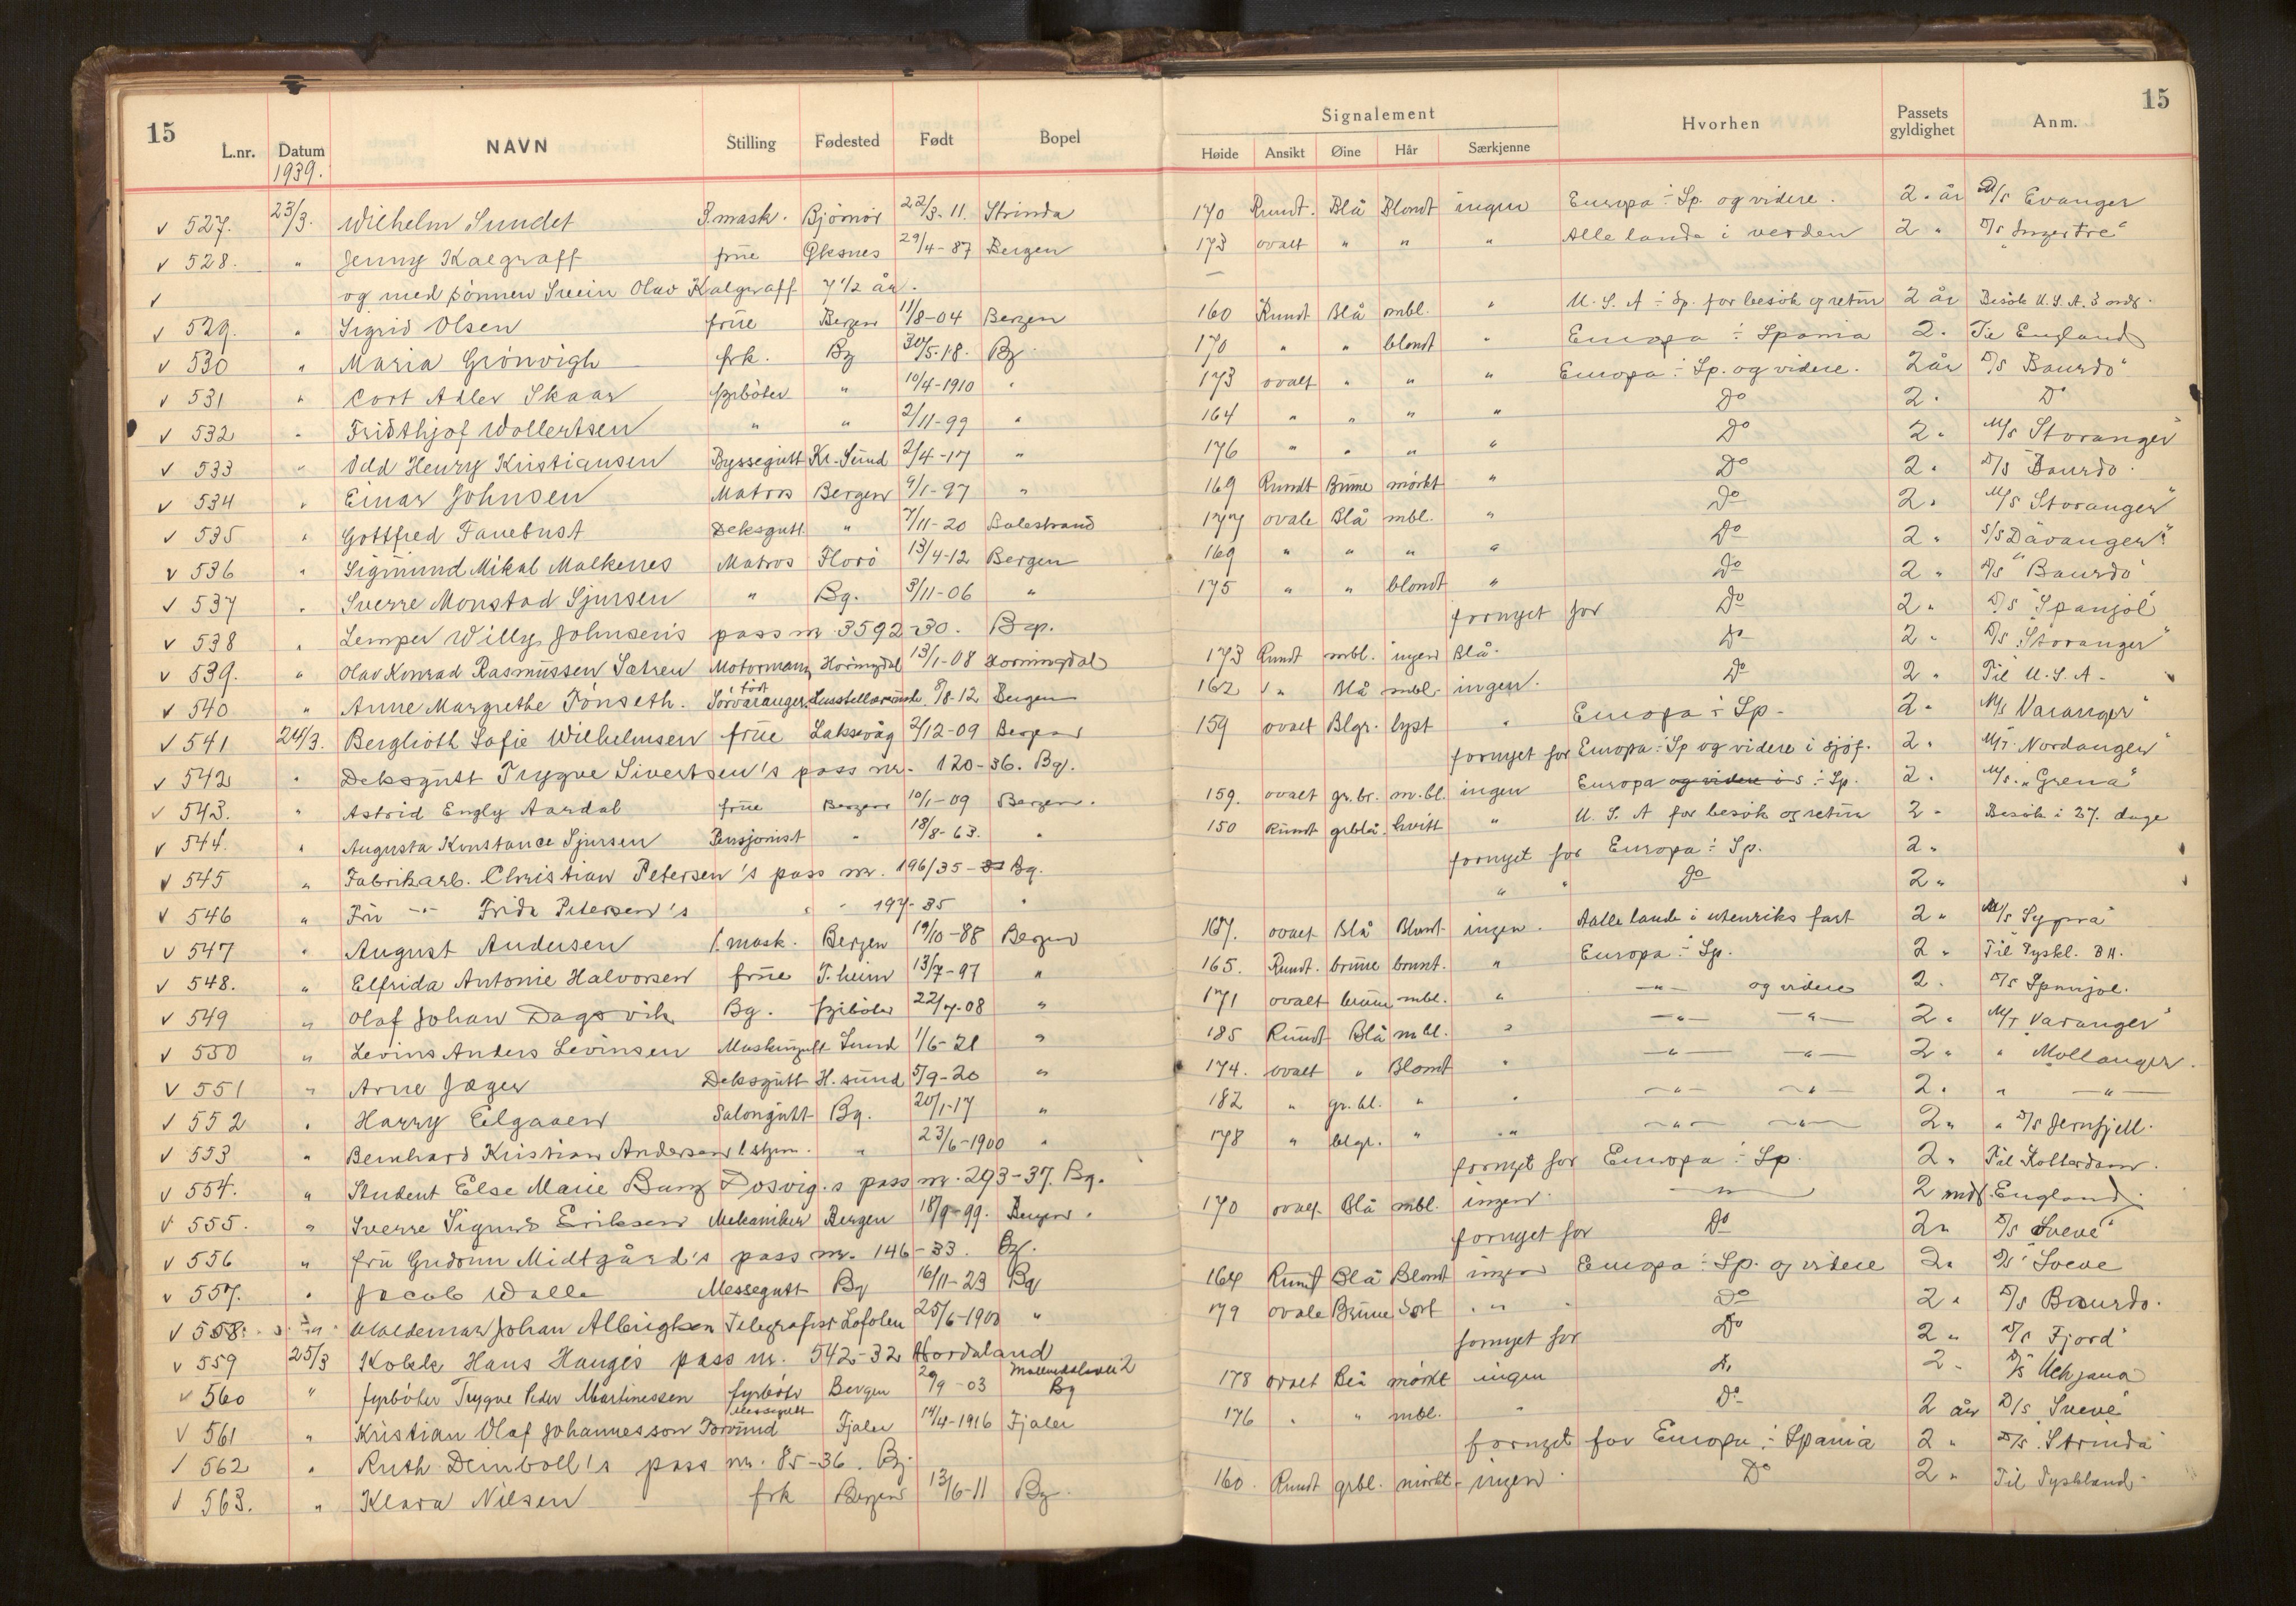 15
15
L.nr. Datum NAVN Stilling Fødested Født Bopel Signalement Høide Ansikt Øine Hår Særkjenne Hvorhen Passets gyldighet Anm.
1939.
v 527. 23/3. Wilhelm Sundet 3.mask. Bjørnør 22/3-11. Strinda 170 Rundt. Blå Blondt ingen Europa ÷ Sp. og videre. 2. år M/s Evanger
v 528. " Jenny Kalgraff frue 29/4-87 Bergen 173 ovalt " " " Alle lande i verden 2 "
v og med sønnen Svein Olav Kalgraff 7 1/2 år.
v 529. " Sigrid Olsen frue Bergen 11/8-04 Bergen 160 Rundt Blå mbl. " U.S.A ÷ Sp. for besøk og retur 2 år Besøk U.S.A. 3 mds.
v 530 " Maria Grönvigh frk. Bg 30/5-18. Bg. 170 " " blondt " Europa ÷ Spania 2. Til England
v 531 " Cort Adler Skaar fyrböter " 10/4-1910 " 173 ovalt " " " Europa ÷ Sp. og videre. 2 år D/s Baurdo"
v 532 " Fridthjof Wollertsen " " 2/11-99 " 164 " " " " Do 2. Do
v 533 " Odd Henry Kristiansen Byssegutt Kr.Sund 2/4-17 " 176 " " " " Do 2. M/s Storanger
v 534 " Einar Johnsen Matros Bergen 9/1-97 " 169 Rundt Brune mørkt " Do 2. D/s Baurdo.
v 535 " Gottfred Fanebust Deksgutt " 7/11-20 Balestrand 177 ovale Blå mbl. " Do 2. M/s Storanger"
v 536 " Sigmund Mikal Malkenes Matros Florö 13/4-12 Bergen 169 " " " " Do 2 " S/s Dåvanger"
v 537 " Sverre Monstad Sjursen " Bg. 3/11-06 " 175 " " blondt " Do 2 " D/s "Baurdo"
v 538 " Lemper Willy Johnsen's pass nr 3592-30. fornyet for Do 2 " D/s "Spanjol"
v 539. " Olav Konrad Rasmussen Sætren Motormann Horningdal 13/1-08 Horningdal 173 Rundt mbl. ingen Blå. Do 2 " Storanger"
v 540 " Anne Margrethe Fönseth. født Sørvaranger. 8/8-12 Bergen 162 " Blå mbl. ingen. Do 2 " Til U.S.A.
v 541 24/3. Berglioth Sofie Wilhelmsen frue Laksevåg 2/12-09 Bergen 159 ovalt Blgr. lyst " Europa ÷ Sp. 2. Varanger"
v 542 " Deksgutt Trygve Sivertsen's pass nr. 120-36. Bg. fornyet for Europa ÷ Sp og videre i sjøf. 2. M/T. Nordanger"
v 543. " Astrid Engly Aardal frue Bergen 10/1-09 Bergen. 159. ovalt gr.br. m.bl. ingen Europa og videre i s ÷ Sp. 2. M/s. "Grena"
v 544. " Augusta Konstance Sjursen Pensjonist " 18/8-63. " 150 Rundt grblå. hvitt " U.S.A for besøk og retur 2 " Besøk i 27. dage
v 545 " Fabrikarb. Christian Petersen's pass nr. 196/35 Bg. fornyet for Europa ÷ Sp. 2 "
v 546 " Fru -"- Frida Petersen's " " 197-35 " " " Do 2 "
v 547 " August Andersen 1. mask. Bergen 19/10-88 Bergen 167. ovalt Blå Blondt ingen. Aalle lande i utenriks fart 2 " M/s
v 548. " Elfrida Antonie Halvorsen frue T.heim 13/7-97 " 165. Rundt. brune brunt. " Europa ÷ Sp. 2 " Til Tyskl.
v 549 " Olaf Johan Dagsvik Bg. fyrböter 22/7-08 " 171 ovalt brune mbl. " -"- og videre 2. D/s Spanjol.
v 550 " Levins Anders Levinsen Maskingutt Sund 1/6-21 " 185 Rundt Blå mbl. " -"- -"- 2. M/T Varanger"
v 551 " Arne Jæger Deksgutt H.sund 5/9-20 " 174. ovalt " Blondt " -"- -"- 2 " " Mollanger.
v 552 " Harry Elgaaen Salongutt Bg. 20/1-17 " 182 " gr.bl. " " -"- -"- 2. " -"-
v 553 " Bernhard Kristian Andersen 1. styrm. " 23/6-1900 " 178 " blgr. " " -"- -"- 2 " D/s Jernfjell.
v 554. " Student Else Marie Bang Dosvig's pass nr. 293-37. Bg. fornyet for Europa ÷ Sp. 2 " Til Rotterdam.
v 555. " Sverre Sigurd Eriksen Mekaniker Bergen 18/9-99. Bergen. 170 ovalt Blå mbl. ingen. -"- 2 mds. England.
v 556 " fru Gudrun Midtgård's pass nr. 146-33. Bg. fornyet for Do 2 " D/s Sveve"
v 557. " Jacob Walle Messegutt Bg 16/11-23 Bg 164 Rundt Blå Blondt ingen Europa ÷ Sp. og videre 2. D/s Sveve
v 558. " Waldemar Johan Albrigtsen Telegrafist Lofoten 25/6-1900 " 179 ovale Brune sort " " Do 2 " D/s Baurdo.
v 559 25/3 Kokk Hans Hauge's pass nr. 542-32 Hordaland fornyet for Do 2 " D/s Fjord"
v 560 " fyrböter Trygve Peder Martinessen fyrböter Bergen 20/9-03 Bg 178 ovalt Blå mörkt ingen Do 2 -
v 561 " Kristian Olaf Johannesson Messegutt Fjaler 14/4-1916 Fjaler 176 " " mbl. " Do 2 år D/s Sveve"
v 562 " Ruth Deinboll's pass nr. 85-36. Bg. fornyet for Europa ÷ Spania 2 " D/s. Strinda"
v 563. " Klara Nilsen frk Bergen 13/6-11 Bg. 160. Rundt grbl. mörkt. ingen. Do 2 " Til Tyskland.